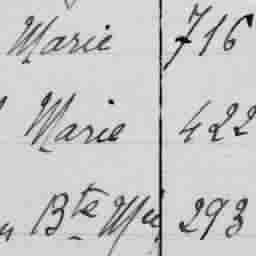 Marie 716
Marie 422
Bte 293